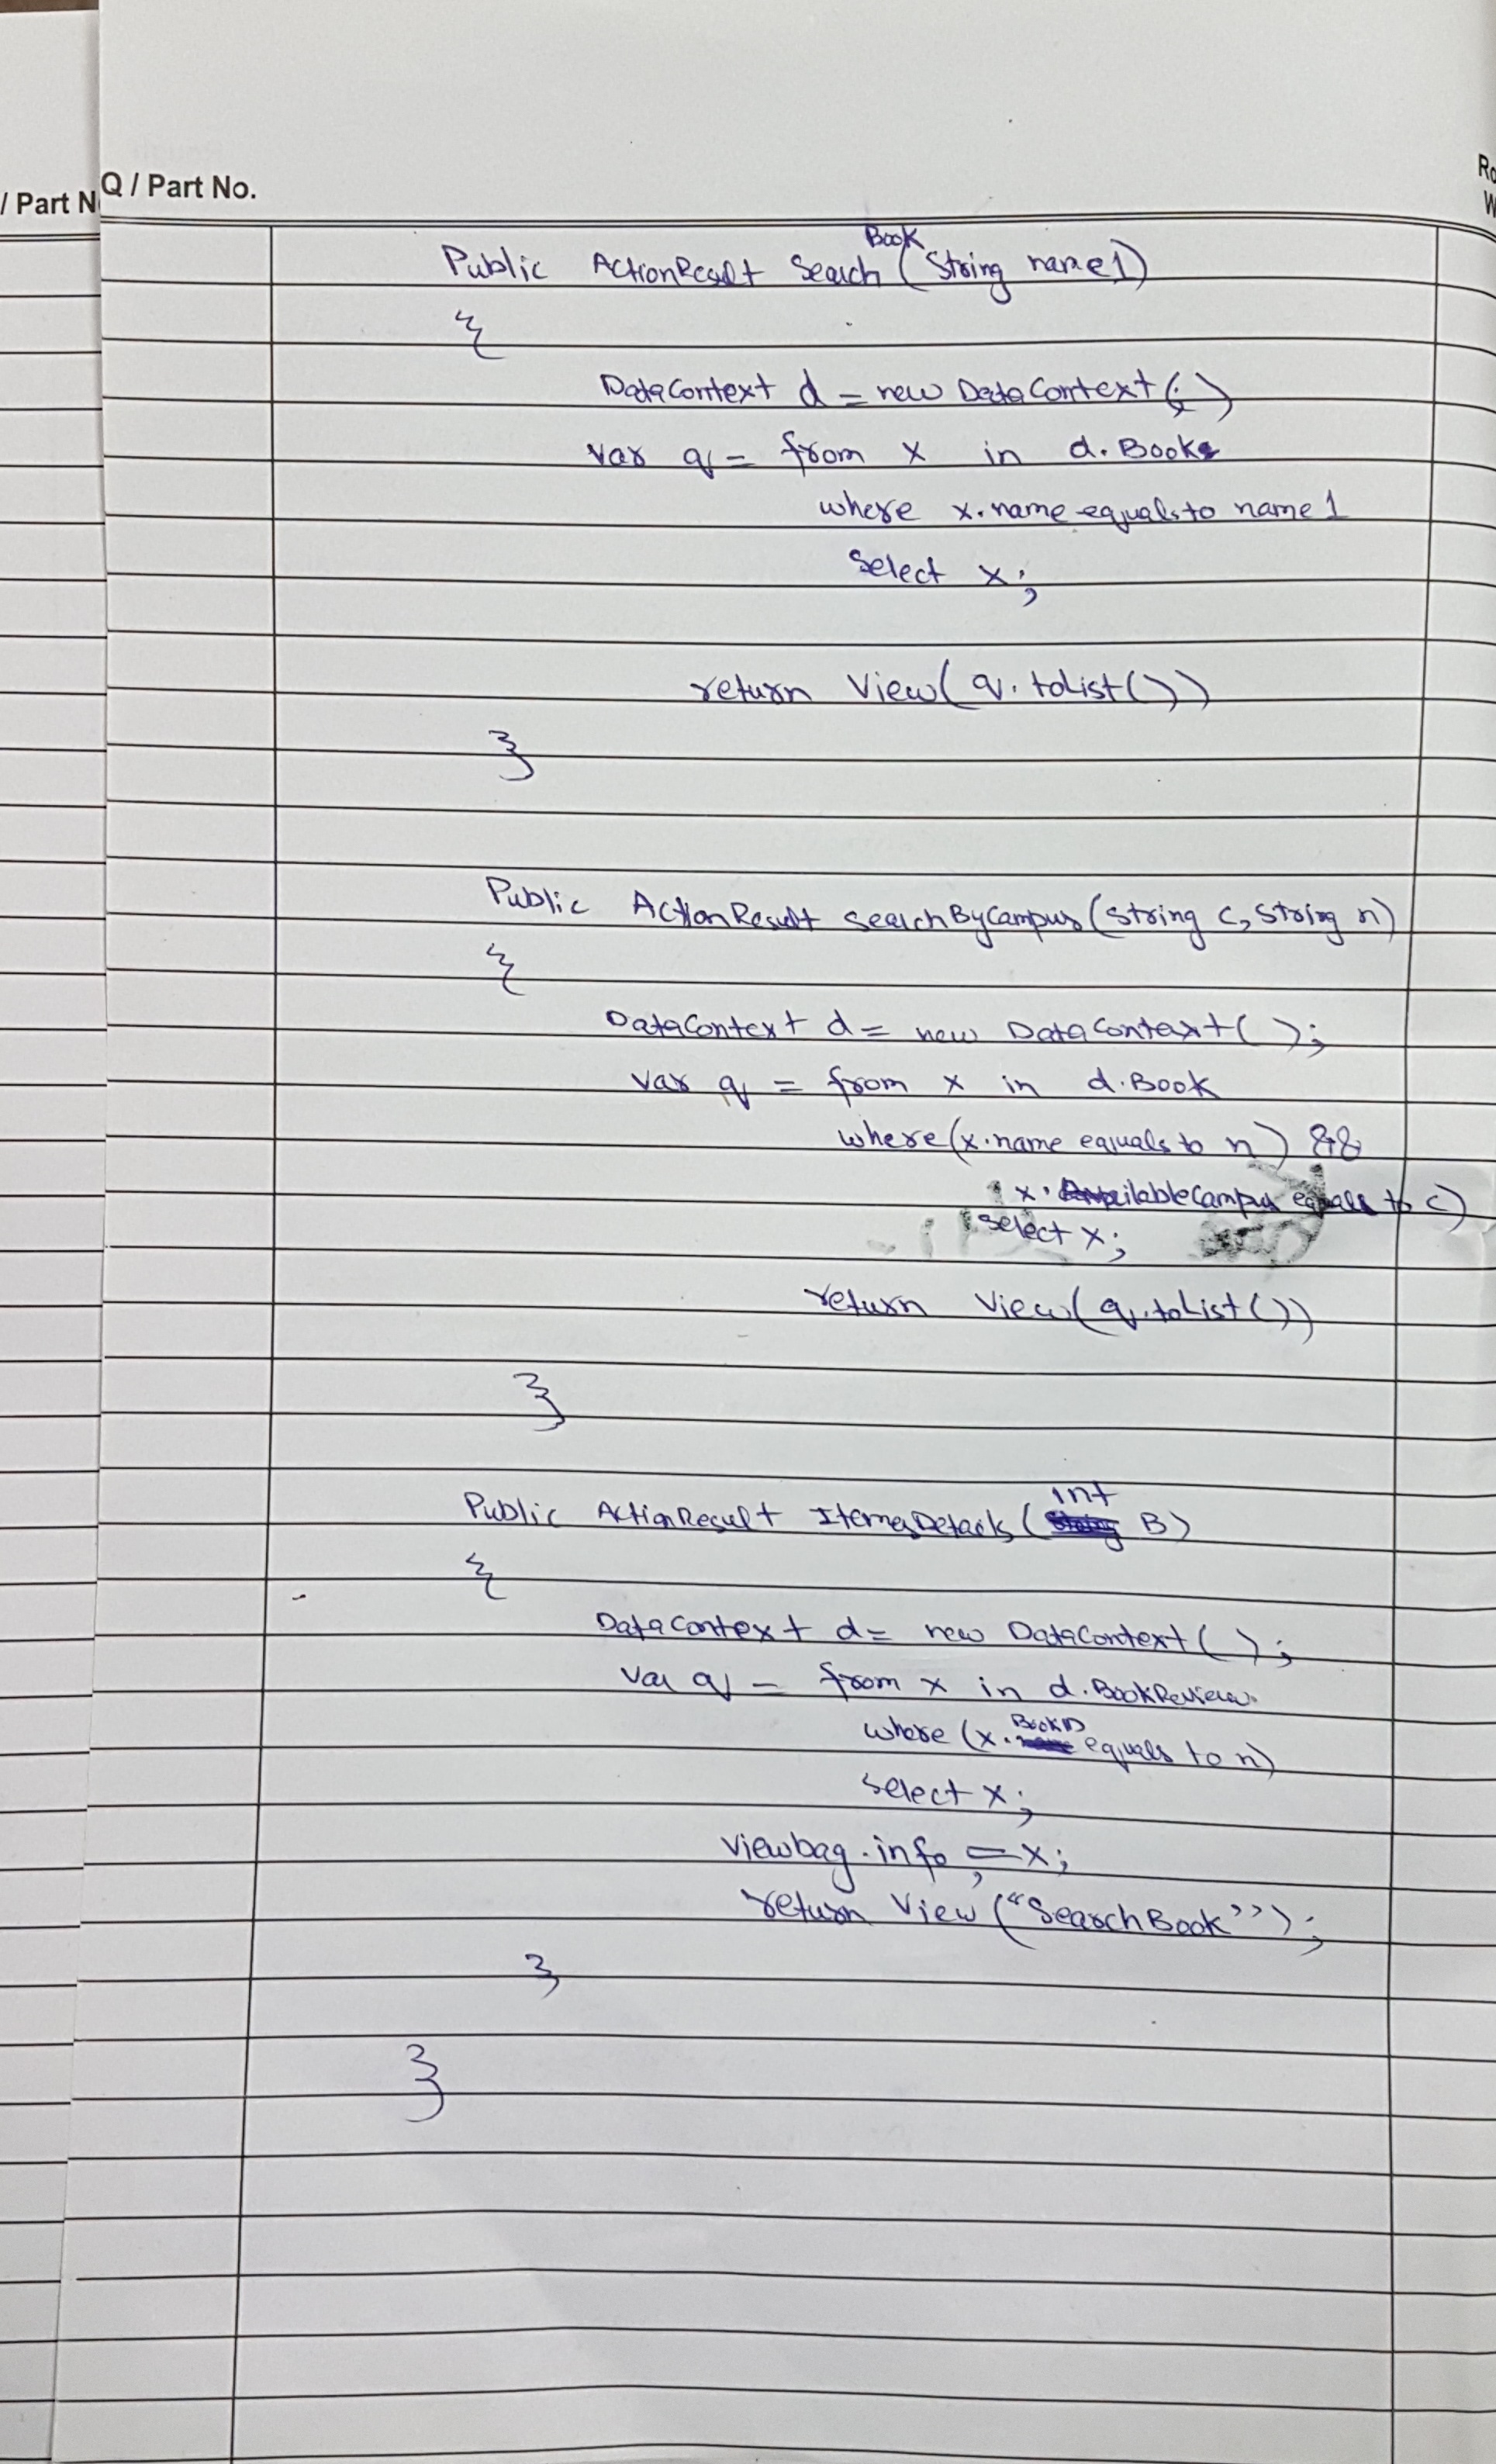 Q / Part No.
/ Part N
Ro
W
Public ActionResult SearchBook (String name1)
{
DataContext d = new DataContext(;)
var q = from x in d.Books
where x.name equalsto name1
Select x;
return View(q.toList())
}
Public ActionResult searchByCampus(string c, string n)
{
DataContext d = new DataContext( );
var q = from x in d.Book
where(x.name equals to n) &&
x.AvailableCampus equals to c)
select x;
return View(q.toList())
}
Public ActionResult ItemesDetails (int B)
{
DataContext d= new DataContext( );
var q = from x in d.BookReview
where (x.BookID equals to n)
select x;
viewbag.info = x;
return View ("SearchBook");
}
}